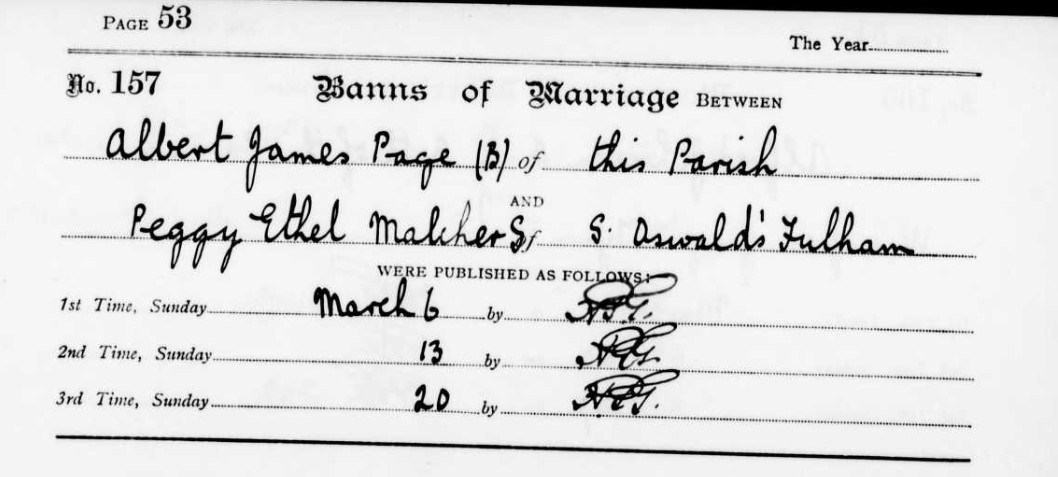 PAGE 53
The Year
No. 157 Banns of Marriage BETWEEN
Albert James Page (B) of this Parish
AND
Peggy Ethel S of S. Oswald's Fulham
WERE PUBLISHED AS FOLLOWS:
1st Time, Sunday March 6 by
2nd Time, Sunday 13 by
3rd Time, Sunday 20 by